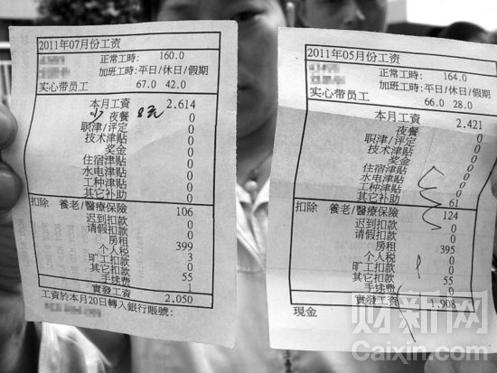 2011年07月份工资
正常工時: 160.0
加班工時:平日/休日/假期
实心带员工 67.0 42.0
本月工资 2.614
少 夜餐 0
职津/评定 0
技术津贴 0
奖金 0
住宿津贴 0
水电津贴 0
工种津贴 0
其它补助 0
扣除 養老/醫療保險 106
迟到扣款 0
请假扣款 0
房租 399
个人税 3
旷工扣款 0
其它扣款 55
手续费 1
實發工资 2.050
工資於本月20日轉入銀行賬號:
2011年05月份工资
正常工時: 164.0
加班工時:平日/休日/假期
实心带员工 66.0 28.0
本月工资 2.421
夜餐 0
职津/评定 0
技术津贴 0
奖金 0
住宿津贴 0
水电津贴 0
工种津贴 0
其它补助 61
扣除 養老/醫療保險 124
迟到扣款 0
请假扣款 0
房租 395
个人税 0
旷工扣款 0
其它扣款 55
手续费 0
實發工资 1.908
現金
财新网
Caixin.com